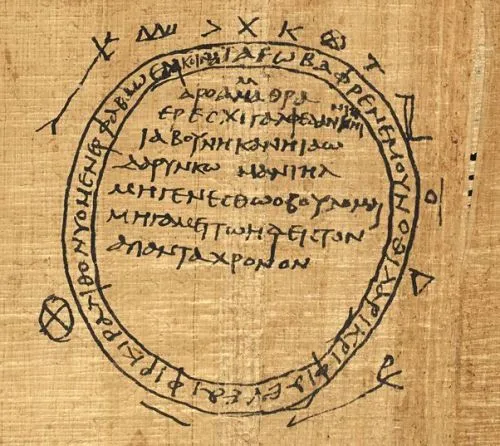 ΙΑΕΩΒΑΦΡΕΝΕΜΟΥΝΟΘΙΛΑΡΙΚΡΙΦΙΑΕΥΕΑΙΦΙΡΚΙΡΑΛΙΘΟΝΥΟΜΕΝΕΡΦΑΒΩΕ
ΑΡΟΑΜΑΘΡΑ
ΕΡΕΣΧΙΓΑΛ
ΙΑΒΟΥΝΗΚΑΝΗΙΑΩ
ΔΑΡΥΝΚΩ ΜΑΝΙΗΛ
ΜΗΓΕΝΕΣΘΩΟΒΟΥΛΟΜΑΙ
ΜΗΓΑΜΕΙΤΩΗΔΕΙΣΤΟΝ
ΑΠΑΝΤΑΧΡΟΝΟΝ